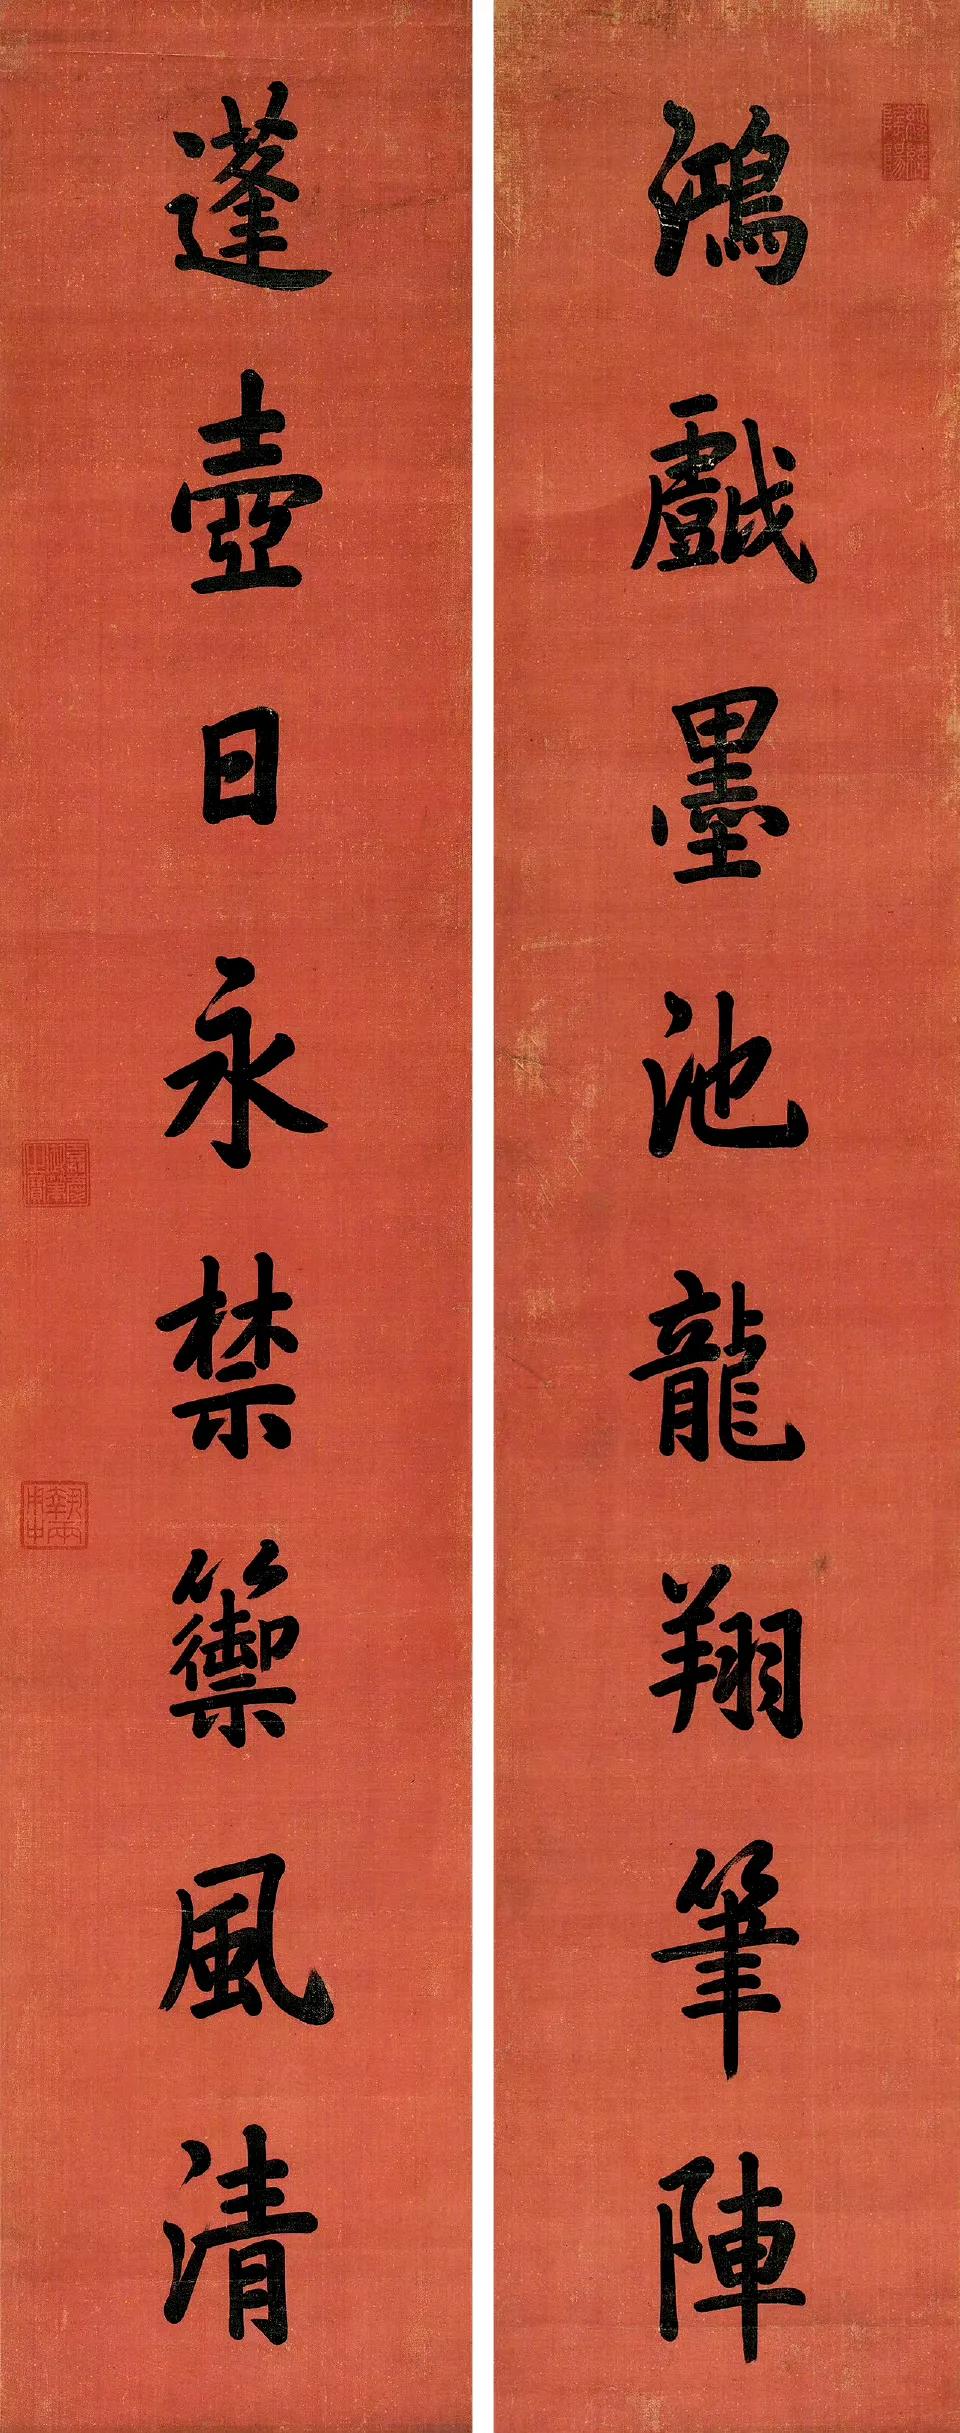 鴻戲墨池龍翔筆陣
蓬壺日永禁籞風清